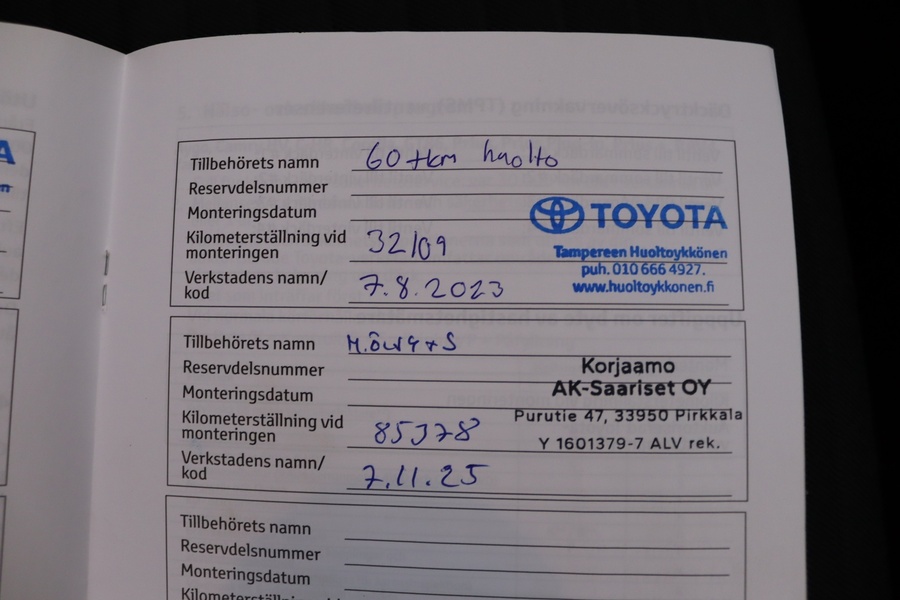 Tillbehörets namn 60 tkm huolto
Reservdelsnummer
Monteringsdatum
TOYOTA
Kilometerställning vid
monteringen 32109
Tampereen Huoltoykkönen
puh. 010 666 4927.
Verkstadens namn/
kod 7.8.2023
www.huoltoykkonen.fi
Tillbehörets namn
Reservdelsnummer
Korjaamo
AK-Saariset OY
Monteringsdatum
Kilometerställning vid
monteringen 85378
Purutie 47, 33950 Pirkkala
Y 1601379-7 ALV rek.
Verkstadens namn/
kod 7.11.25
Tillbehörets namn
Reservdelsnummer
Monteringsdatum
Kilometerställning vid